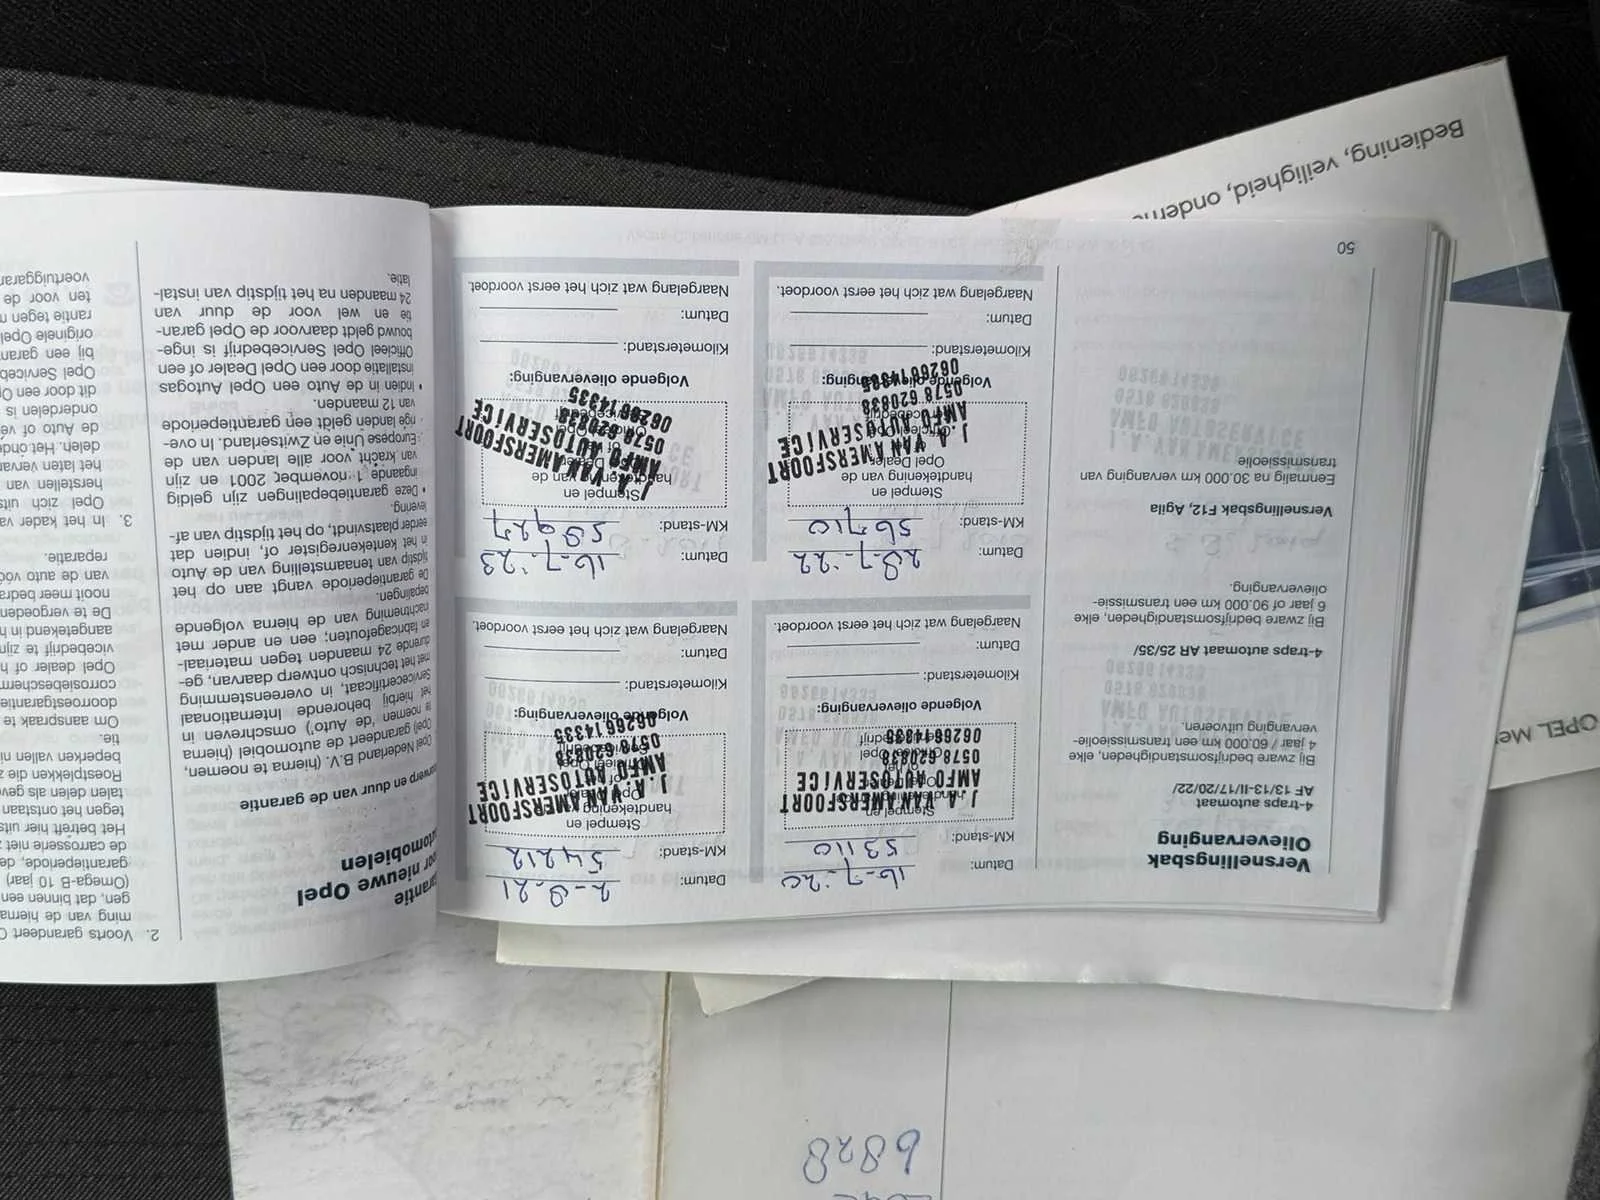 Bediening, veiligheid, onderh
OPEL Me
50
Versnellingsbak
Olievervanging
4-traps automaat
AF 13/13-II/17/20/22/
Bij zware bedrijfsomstandigheden, elke
4 jaar / 60.000 km een transmissieolie-
vervanging uitvoeren.
4-traps automaat AR 25/35/
Bij zware bedrijfsomstandigheden, elke
6 jaar of 90.000 km een transmissie-
olievervanging.
Versnellingsbak, F12, Agila
Eenmalig na 30.000 km vervanging van
transmissieolie
Datum: 16-7-'20
KM-stand: 53110
Stempel en
J.A. VAN AMERSFOORT
AMFO AUTOSERVICE
0578 620838
0626614335
Volgende olievervanging:
Kilometerstand:
Datum:
Naargelang wat zich het eerst voordoet.
Datum: 28-7-'22
KM-stand: 56710
Stempel en
handtekening van de
Opel Dealer
J.A. VAN AMERSFOORT
AMFO AUTOSERVICE
0578 620838
0626614335
Volgende olievervanging:
Kilometerstand:
Datum:
Naargelang wat zich het eerst voordoet.
Datum: 2-8-21
KM-stand: 54212
Stempel en
handtekening van de
J.A. VAN AMERSFOORT
AMFO AUTOSERVICE
0578 620838
0626614335
Volgende olievervanging:
Kilometerstand:
Datum:
Naargelang wat zich het eerst voordoet.
Datum: 16-7-'23
KM-stand: 58927
Stempel en
handtekening van de
J.A. VAN AMERSFOORT
AMFO AUTOSERVICE
0578 620838
0626614335
Volgende olievervanging:
Kilometerstand:
Datum:
Naargelang wat zich het eerst voordoet.
arantie
oor nieuwe Opel
utomobielen
nwerp en duur van de garantie
Opel Nederland B.V. (hierna te noemen,
Opel) garandeert de automobiel (hierna
te noemen 'de Auto') omschreven in
het hierbij behorende Internationaal
Servicecertificaat, in overeenstemming
met het technisch ontwerp daarvan, ge-
durende 24 maanden tegen materiaal-
en fabricagefouten; een en ander met
nachtneming van de hierna volgende
bepalingen.
De garantieperiode vangt aan op het
tijdstip van tenaamstelling van de Auto
in het kentekenregister of, indien dat
eerder plaatsvindt, op het tijdstip van af-
levering.
• Deze garantiebepalingen zijn geldig
ingaande 1 november 2001 en zijn
van kracht voor alle landen van de
Europese Unie en Zwitserland. In ove-
rige landen geldt een garantieperiode
van 12 maanden.
• Indien in de Auto een Opel Autogas
installatie door een Opel Dealer of een
Officieel Opel Servicebedrijf is inge-
bouwd geldt daarvoor de Opel garan-
tie en wel voor de duur van
24 maanden na het tijdstip van instal-
latie.
2. Voorts garandeert O
ming van de hierna
gen, dat binnen een
(Omega-B 10 jaar)
garantieperiode, de
de carrosserie niet
Het betreft hier uits
tegen het ontstaan
talen delen als gev
Roestplekken die z
beperken vallen ni
tie.
Om aanspraak te
doorroestgarantie
corrosiebescherm
Opel dealer of h
vicebedrijf te zijn
aangetekend in h
De te vergoeden
nooit meer bedra
van de auto vóó
reparatie.
3. In het kader va
Opel zich uits
herstellen van
het laten verva
delen. Het onde
de Auto of ve
onderdelen is
dit door een O
Opel Serviceb
bij een garan
originele Opel
rantie tegen m
ten voor de
voertuiggaran
6828